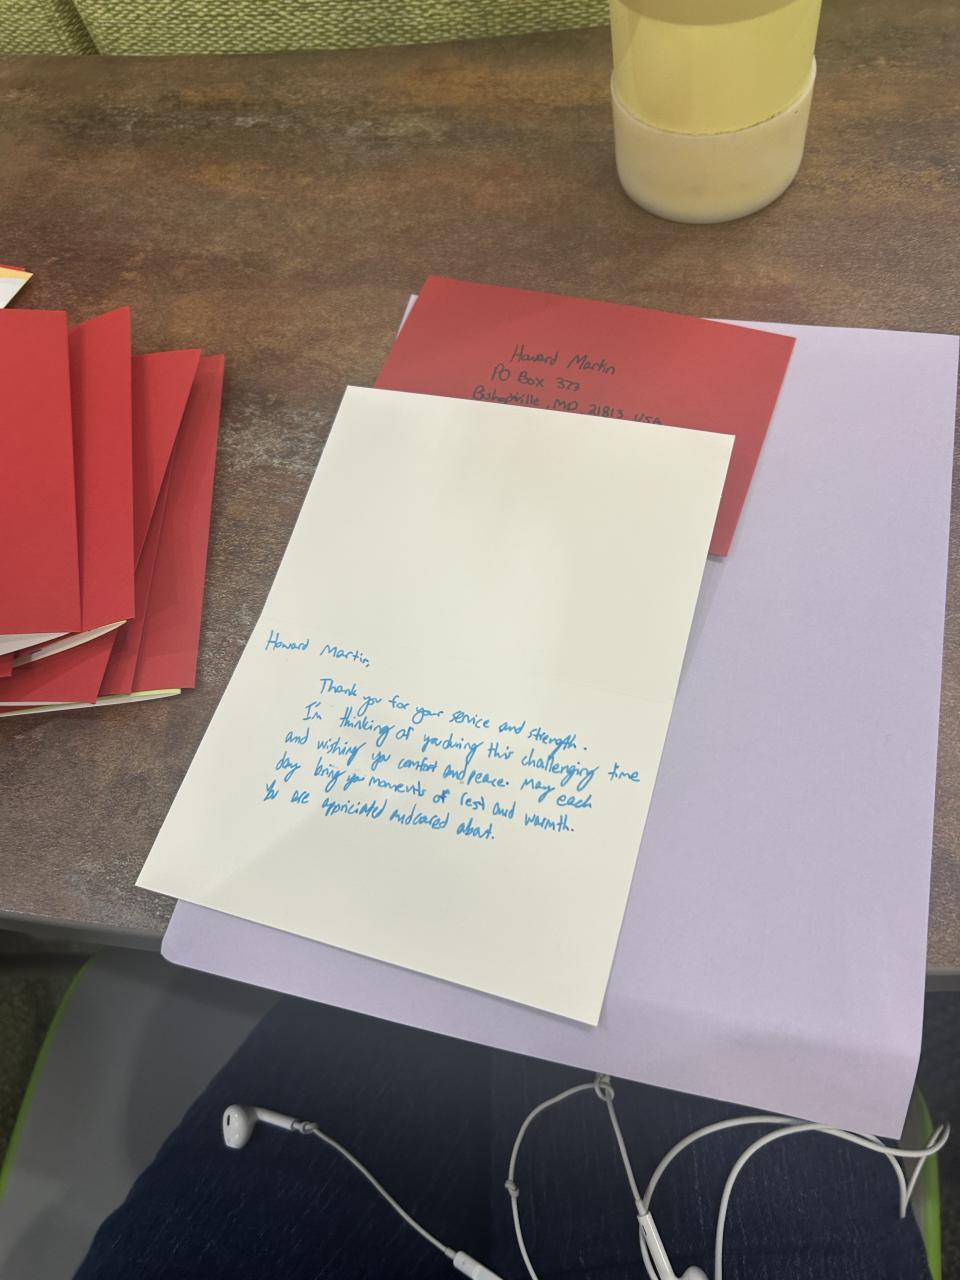 Howard Martin
PO Box 373
Bishopville, MD 21813 USA
Howard Martin,
Thank you for your service and strength.
I'm thinking of you during this challenging time
and wishing you comfort and peace. May each
day bring you moments of rest and warmth.
You are appriciated and cared about.